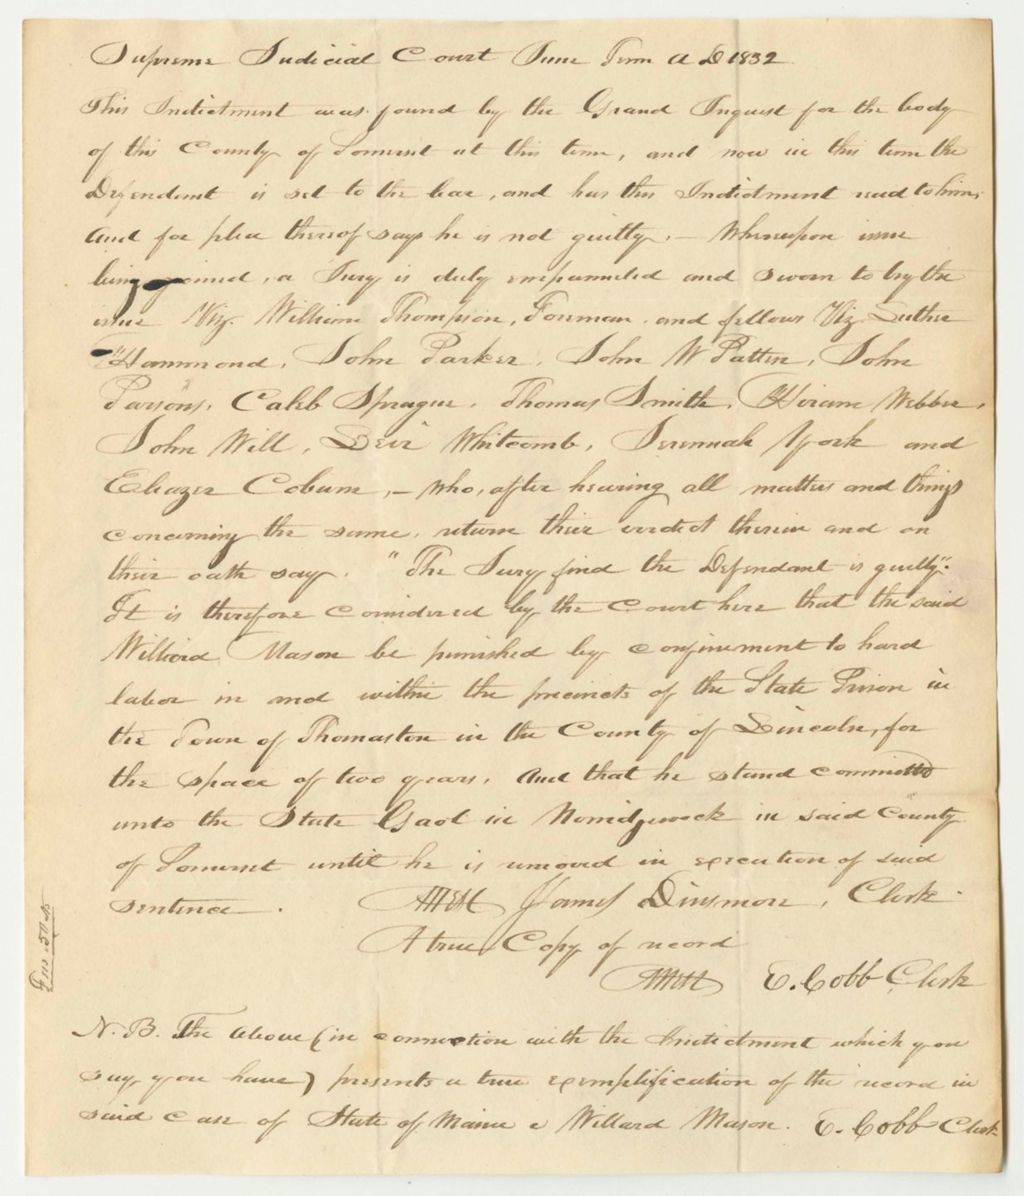 Supreme Judicial Court June Term A D 1832
This Indictment was found by the Grand Inquest for the body
of this County of Somerset at this term, and now in this term the
Defendant is set to the bar, and has this Indictment read to him,
And for plea thereof says he is not guilty. — Whereupon issue
being joined, a Jury is duly empanneled and sworn to try the
issue Viz. William Thompson, Foreman and fellows Viz Luther
Hammond, John Parker, John W Patten, John
Parsons, Caleb Sprague, Thomas Smith, Hiram Webber,
John Will, Levi Whitcomb, Jeremiah York and
Eleazer Coburn, — Who, after hearing all matters and things
concerning the same, return their verdict therein and on
their oath say. "The Jury find the Defendant is guilty."
It is therefore considered by the Court here that the said
Williard Mason be punished by confinement to hard
labor in and within the precincts of the State Prison in
the Town of Thomaston in the County of Lincoln, for
the space of two years. And that he stand committed
unto the State Gaol in Norridgewock in said County
of Somerset until he is removed in execution of said
sentence. Attest James Dinsmore, Clerk.
A true Copy of record
Attest E. Cobb Clerk
N. B. The above (in connection with the Indictment which you
say you have) presents a true exemplification of the record in
said case of State of Maine v Willard Mason. E. Cobb Clerk
Fees .50 cts